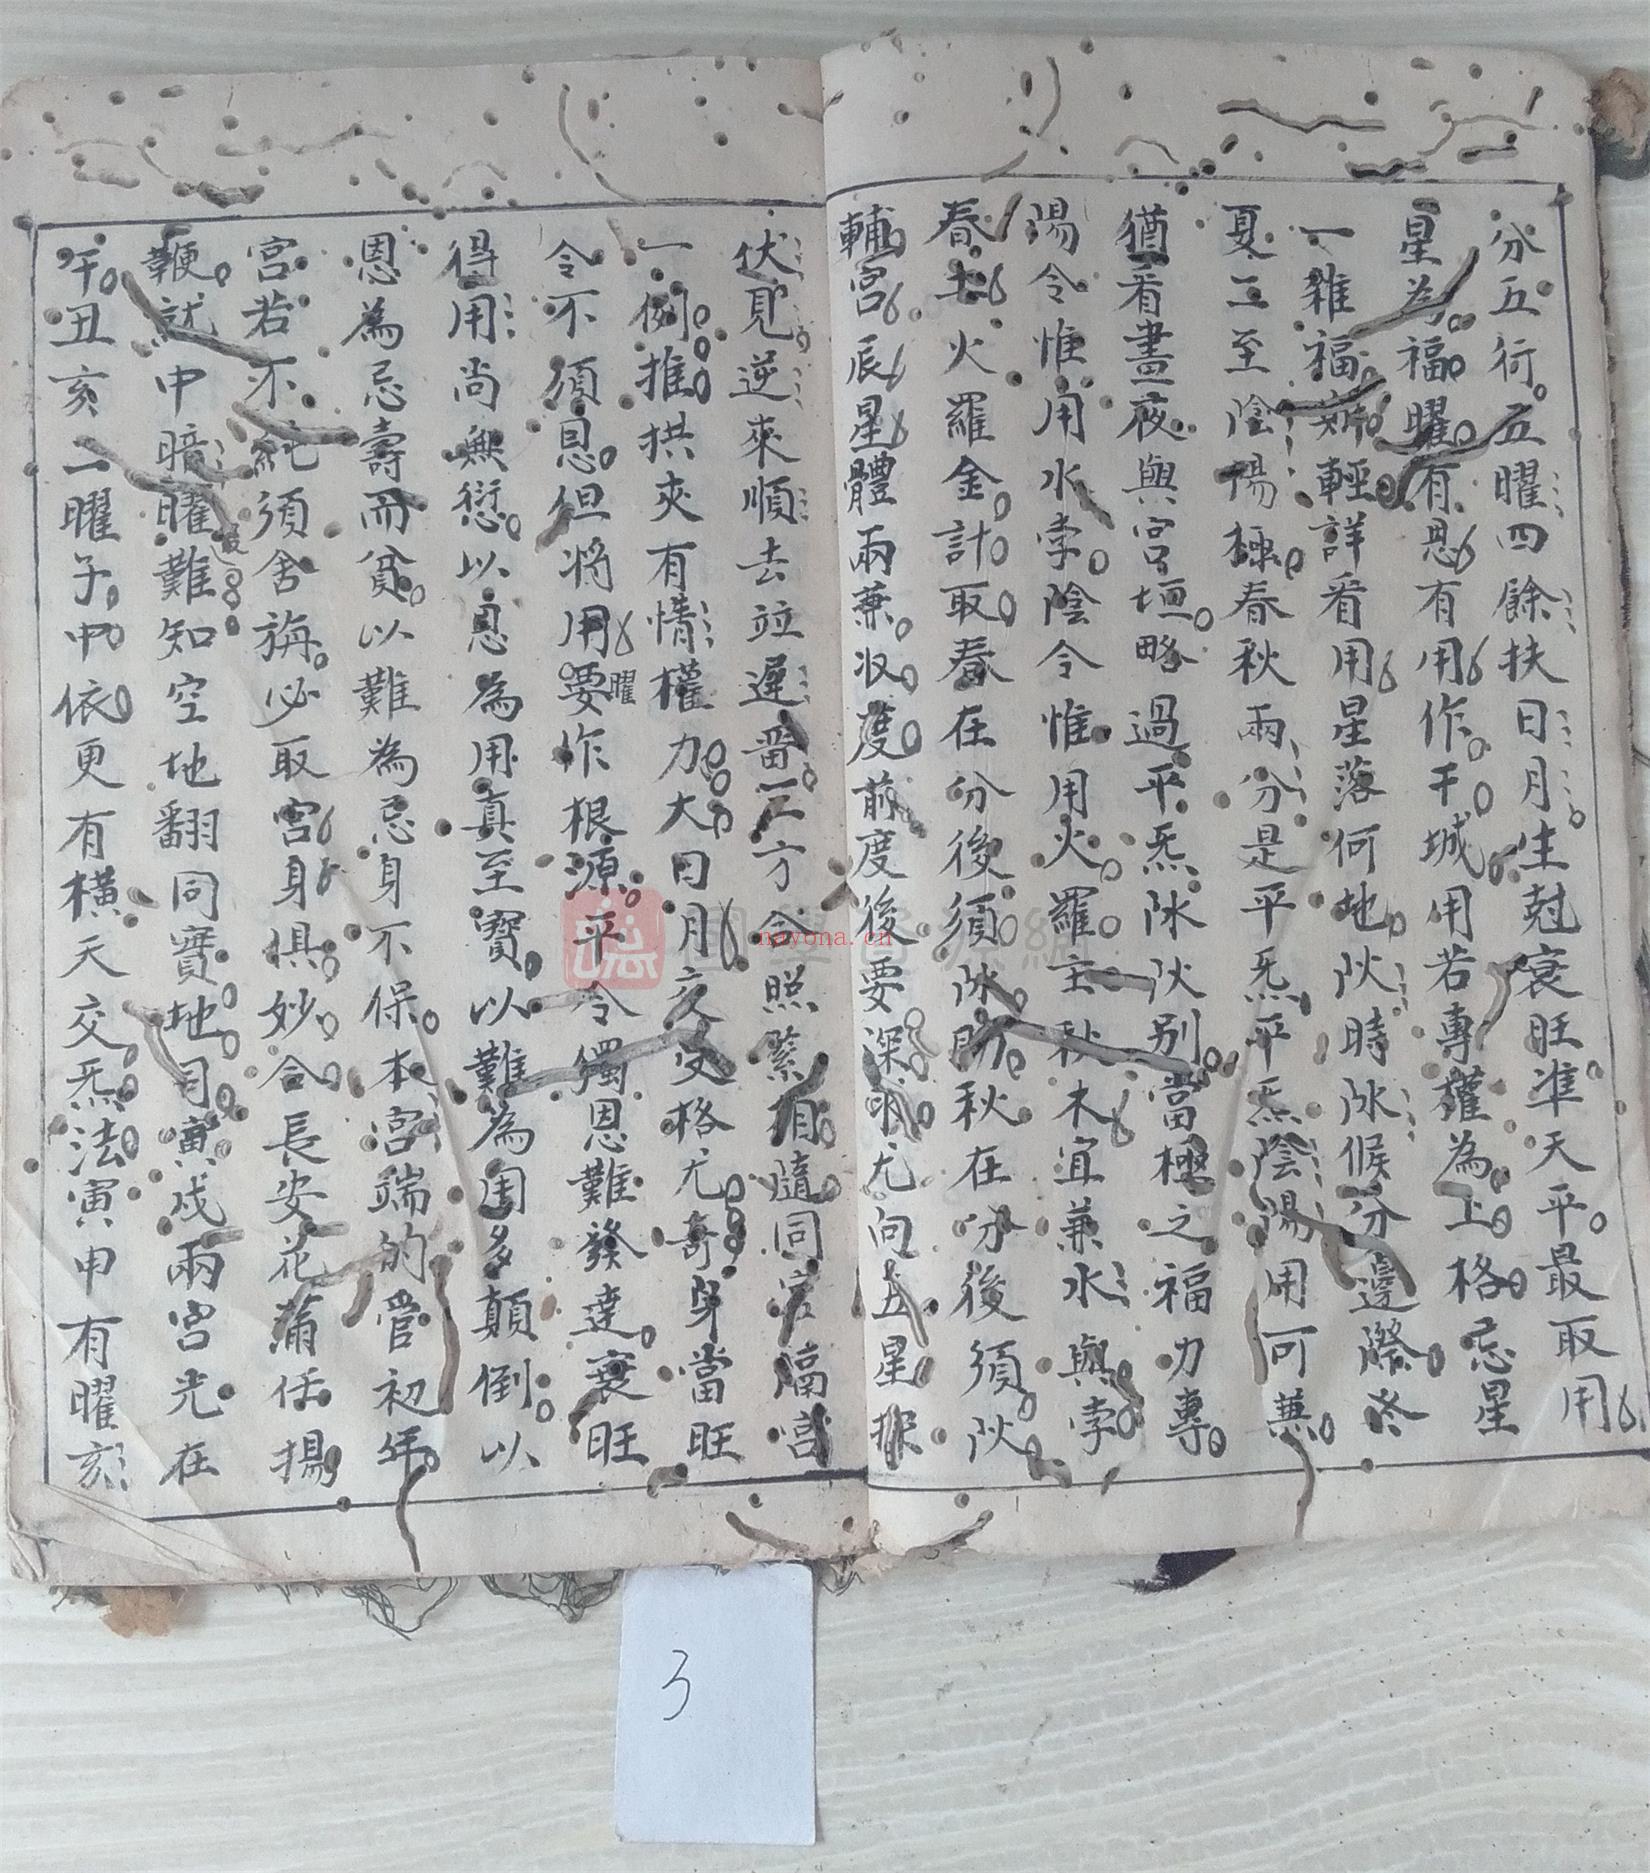 分五行五曜四餘扶日月生尅衰旺準天平最取用
星為福曜有恩有用作干城用若專權為上格忌星
一雜福斯輕詳看用星落何地炏時炢候分邊際冬
夏二至陰陽極春秋兩分是平炁平炁陰陽用可兼
猶看晝夜與宮垣略過平炁炢炏別當極之福力專
陽令惟用水孛陰令惟用火羅土秋木宜兼水與孛
春土火羅金計取春在分後須炢助秋在分後須炏
輔宮辰星體兩兼收度前度後要深求尤向五星探
伏見逆來順去並遲留三方合照緊相隨同宮隔宮
一例推拱夾有情權力大日月交受格尤奇身當旺
令不須恩但將用曜要作根源平令獨恩難發達衰旺
得用尚無愆以恩為用真至寶以難為用多顛倒以
恩為忌壽而貧以難為忌身不保本宮端的管初年
宮若不純須舍旃必取宮身俱妙合長安花滿任揚
鞭就中暗曜難知空地翻同實地同寅戌兩宮光在
午丑亥二曜子中依更有橫天交炁法寅申有曜亥
國學資源網
nayona.cn
3